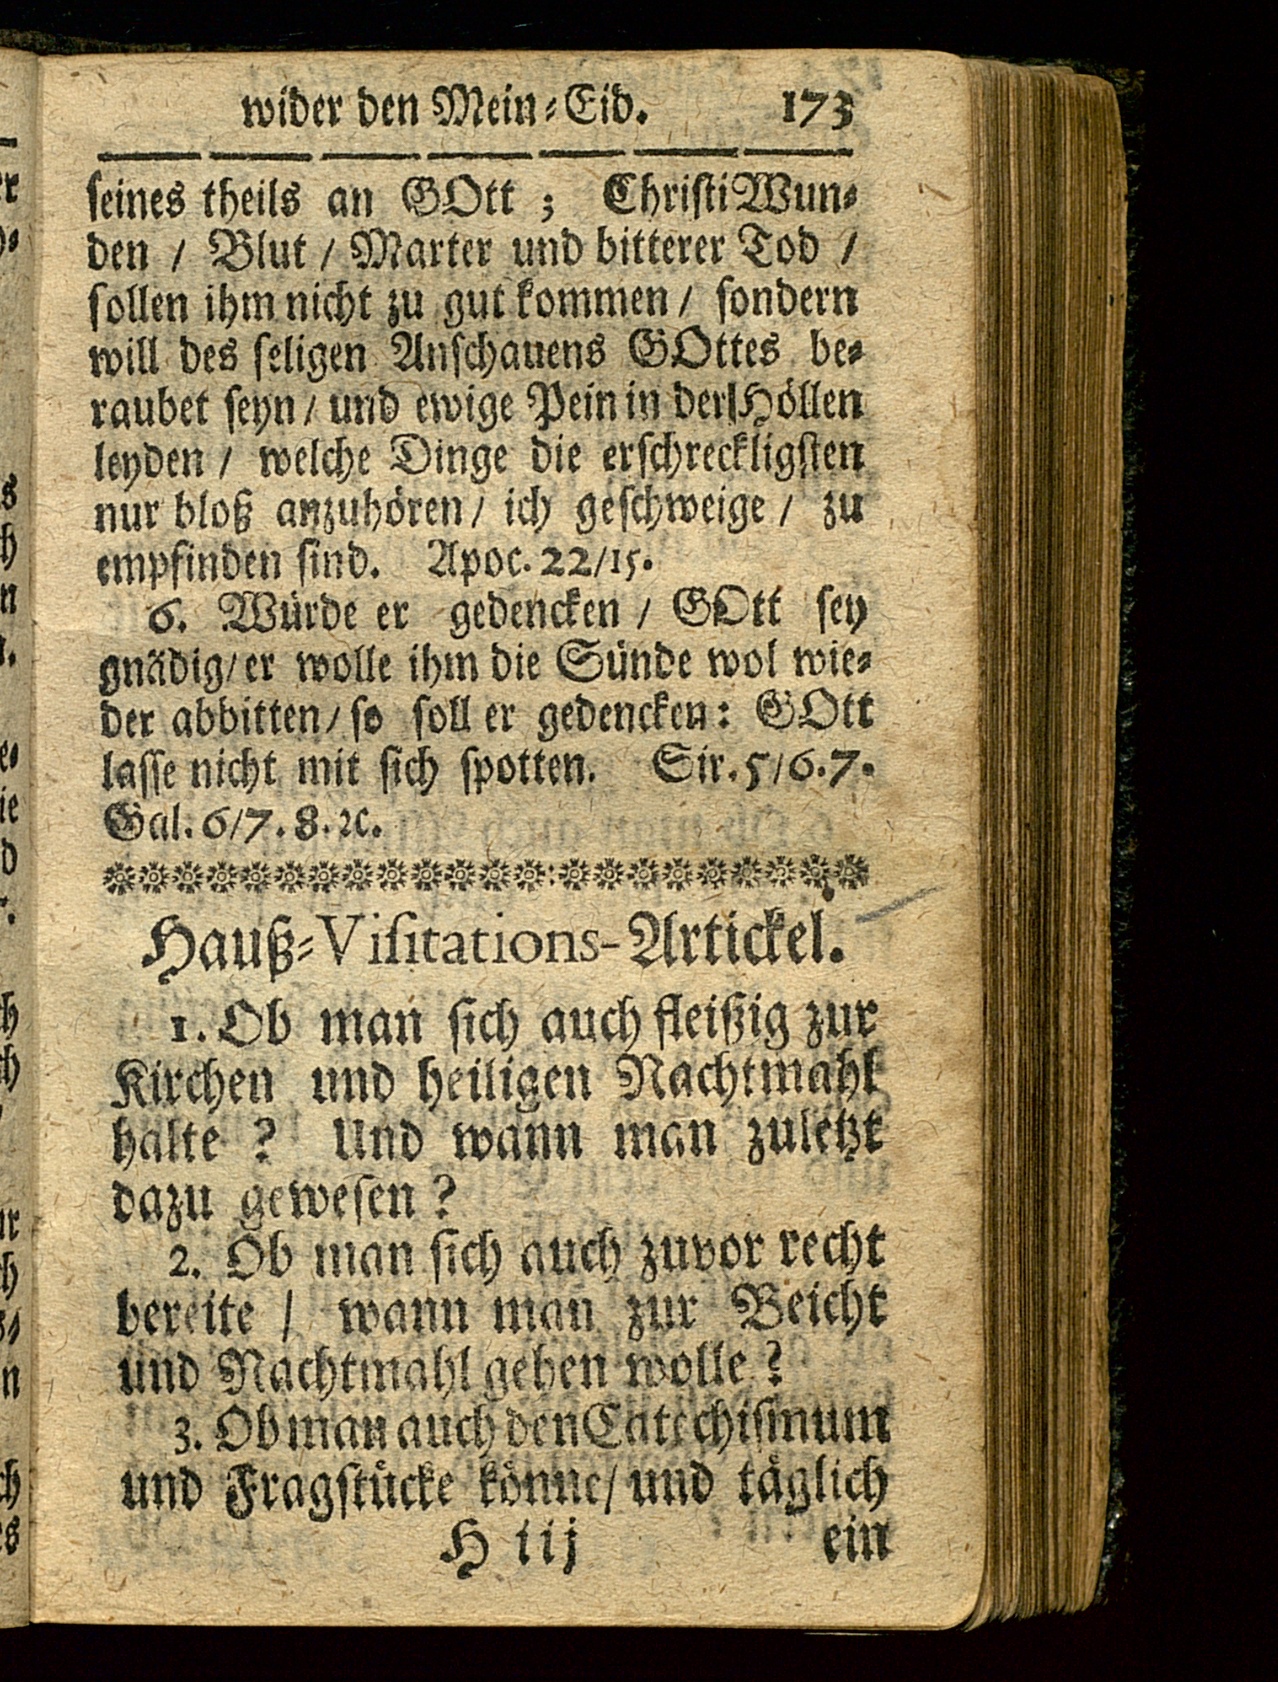 wider den Mein⸗Eid. 173
ſeines theils an GOtt ; Chriſti Wun⸗
den / Blut / Marter und bitterer Tod /
ſollen ihm nicht zu gut kommen / ſondern
will des ſeligen Anſchauens GOttes be⸗
raubet ſeyn / und ewige Pein in der Höllen
leyden / welche Dinge die erſchreckligſten
nur bloß anzuhören / ich geſchweige / zu
empfinden ſind. Apoc. 22/15.
6. Würde er gedencken / GOtt ſey
gnädig/ er wolle ihm die Sünde wol wie⸗
der abbitten/ ſo ſoll er gedencken: GOtt
laſſe nicht mit ſich ſpotten. Sir. 5/6.7.
Gal. 6/7. 8. ꝛc.
Hauß⸗Viſitations-Artickel.
1. Ob man ſich auch fleißig zur
Kirchen und heiligen Nachtmahl
halte ? Und wann man zuletzt
dazu geweſen ?
2. Ob man ſich auch zuvor recht
bereite / wann man zur Beicht
und Nachtmahl gehen wolle ?
3. Ob man auch den Catechiſmum
und Fragſtücke könne/ und täglich
H iij ein